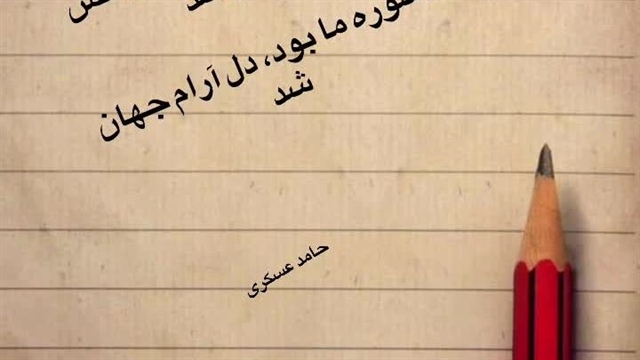 ما بود، دل آرام جهان
شد
حامد عسکری